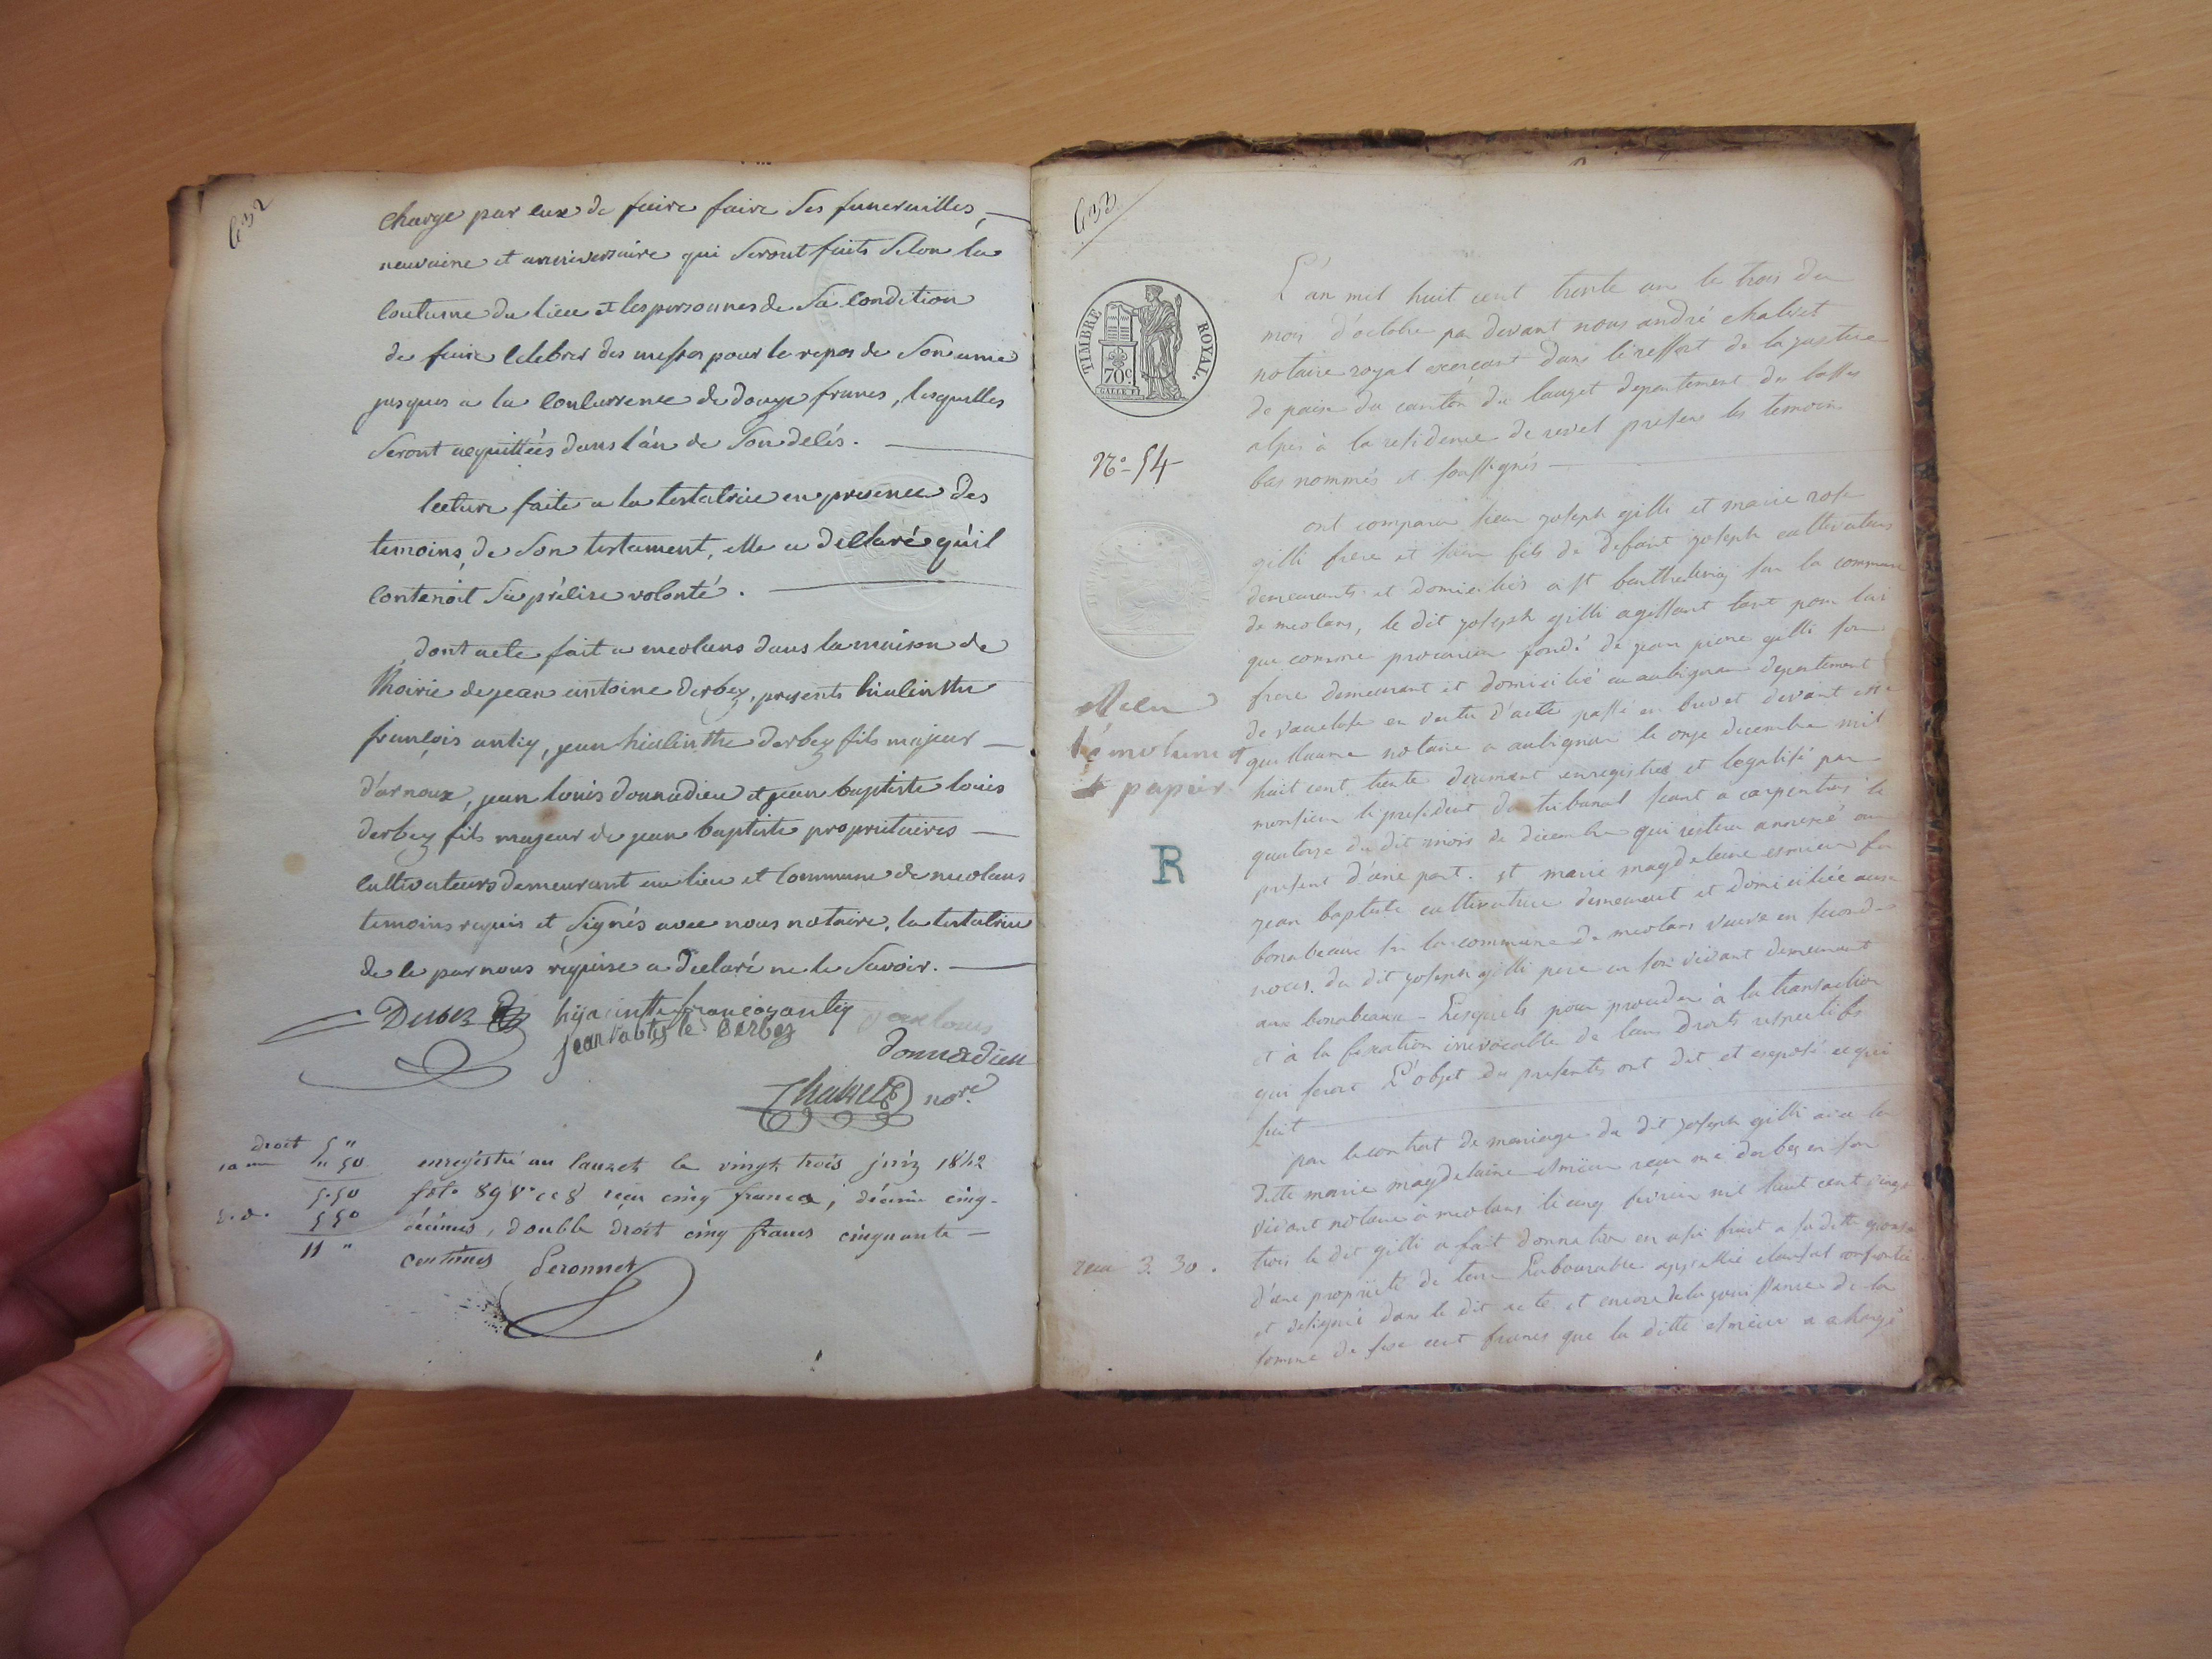 432
charge par eux de faire faire ses funerailles,
neuvaine et anniversaire qui seront faits selon la
coutume du lieu et les personnes de sa condition
de faire celebrer des messes pour le repos de son ame
jusques a la concurrence de douze francs, lesquelles
seront acquittées dans l'an de son decés.
lecture faite a la testatrice en presence des
temoins de son testament, elle a déclaré qu'il
contenoit sa précise volonté.
dont acte fait a meolans dans la maison de
thoirie de jean antoine derbez, presents hiacinthe
françois antiq, jean hiacinthe derbez fils majeur
d'arnoux, jean louis donnadieu et jean baptiste louis
derbez fils majeur de jean baptiste propriétaires
cultivateurs demeurant au lieu et commune de meolans
temoins requis et signés avec nous notaire, la testatrice
de le par nous requise a declaré ne le savoir.
Derbez hijacinthe françoy antiq jean louis
donnadieu
Chalvet nore
droit 5 "
" 50
5.50
5 50
11 "
enregistré au lauzet le vingt trois juin 1842
folo 89 vo ce 8 reçu cinq francs, décime cinq-
décimes, double droit cinq francs cinquante
centimes Peronnet
433
TIMBRE ROYAL.
70c.
No 54
papier
R
recu 3. 30.
L'an mil huit cent trente un le trois du
mois d'octobre par devant nous andré chalvet
notaire royal exerçant dans le ressort de la justice
de paix du canton du lauzet departement des basses
alpes à la residence de revel present les temoins
bas nommés et soussignés
ont comparu sieur joseph gilli et marie rose
gilli frere et sœur fils de defunt joseph cultivateurs
demeurants et domiciliés a st barthelemy sur la commune
de meolans, le dit joseph gilli agissant tant pour lui
que comme procureur fondé de jean pierre gilli son
frere demeurant et domicilié en aubignan departement
de vaucluse en vertu d'acte passé en brevet devant me
guillaume notaire a aubignan le onze decembre mil
huit cent trente duement enregistré et legalisé par
monsieur le president du tribunal seant a carpentras le
quatorze du dit mois de decembre qui restera annexé au
present d'une part. et marie magdelaine esmieu feu
jean baptiste cultivatrice demeurant et domiciliée aux
bonabeaux sur la commune de meolans veuve en seconde
noces du dit joseph gilli pere en son vivant demeurant
aux bonabeaux - Lesquels pour proceder à la transaction
et à la fixation irrevocable de leurs droits respectifs
qui feront L'objet des presentes ont dit et exposé ce qui
suit
par le contrat de mariage du dit joseph gilli avec la
ditte marie magdelaine esmieu reçu me derbez en son
vivant notaire à meolans le cinq fevrier mil huit cent vingt
trois le dit gilli a fait donnation en usu fruit a sa ditte epouse
d'une propriété de terre Labourable appellée confrontée
et designée dans le dit acte et encore de la jouissance de la
somme de six cent francs que la ditte esmieu a